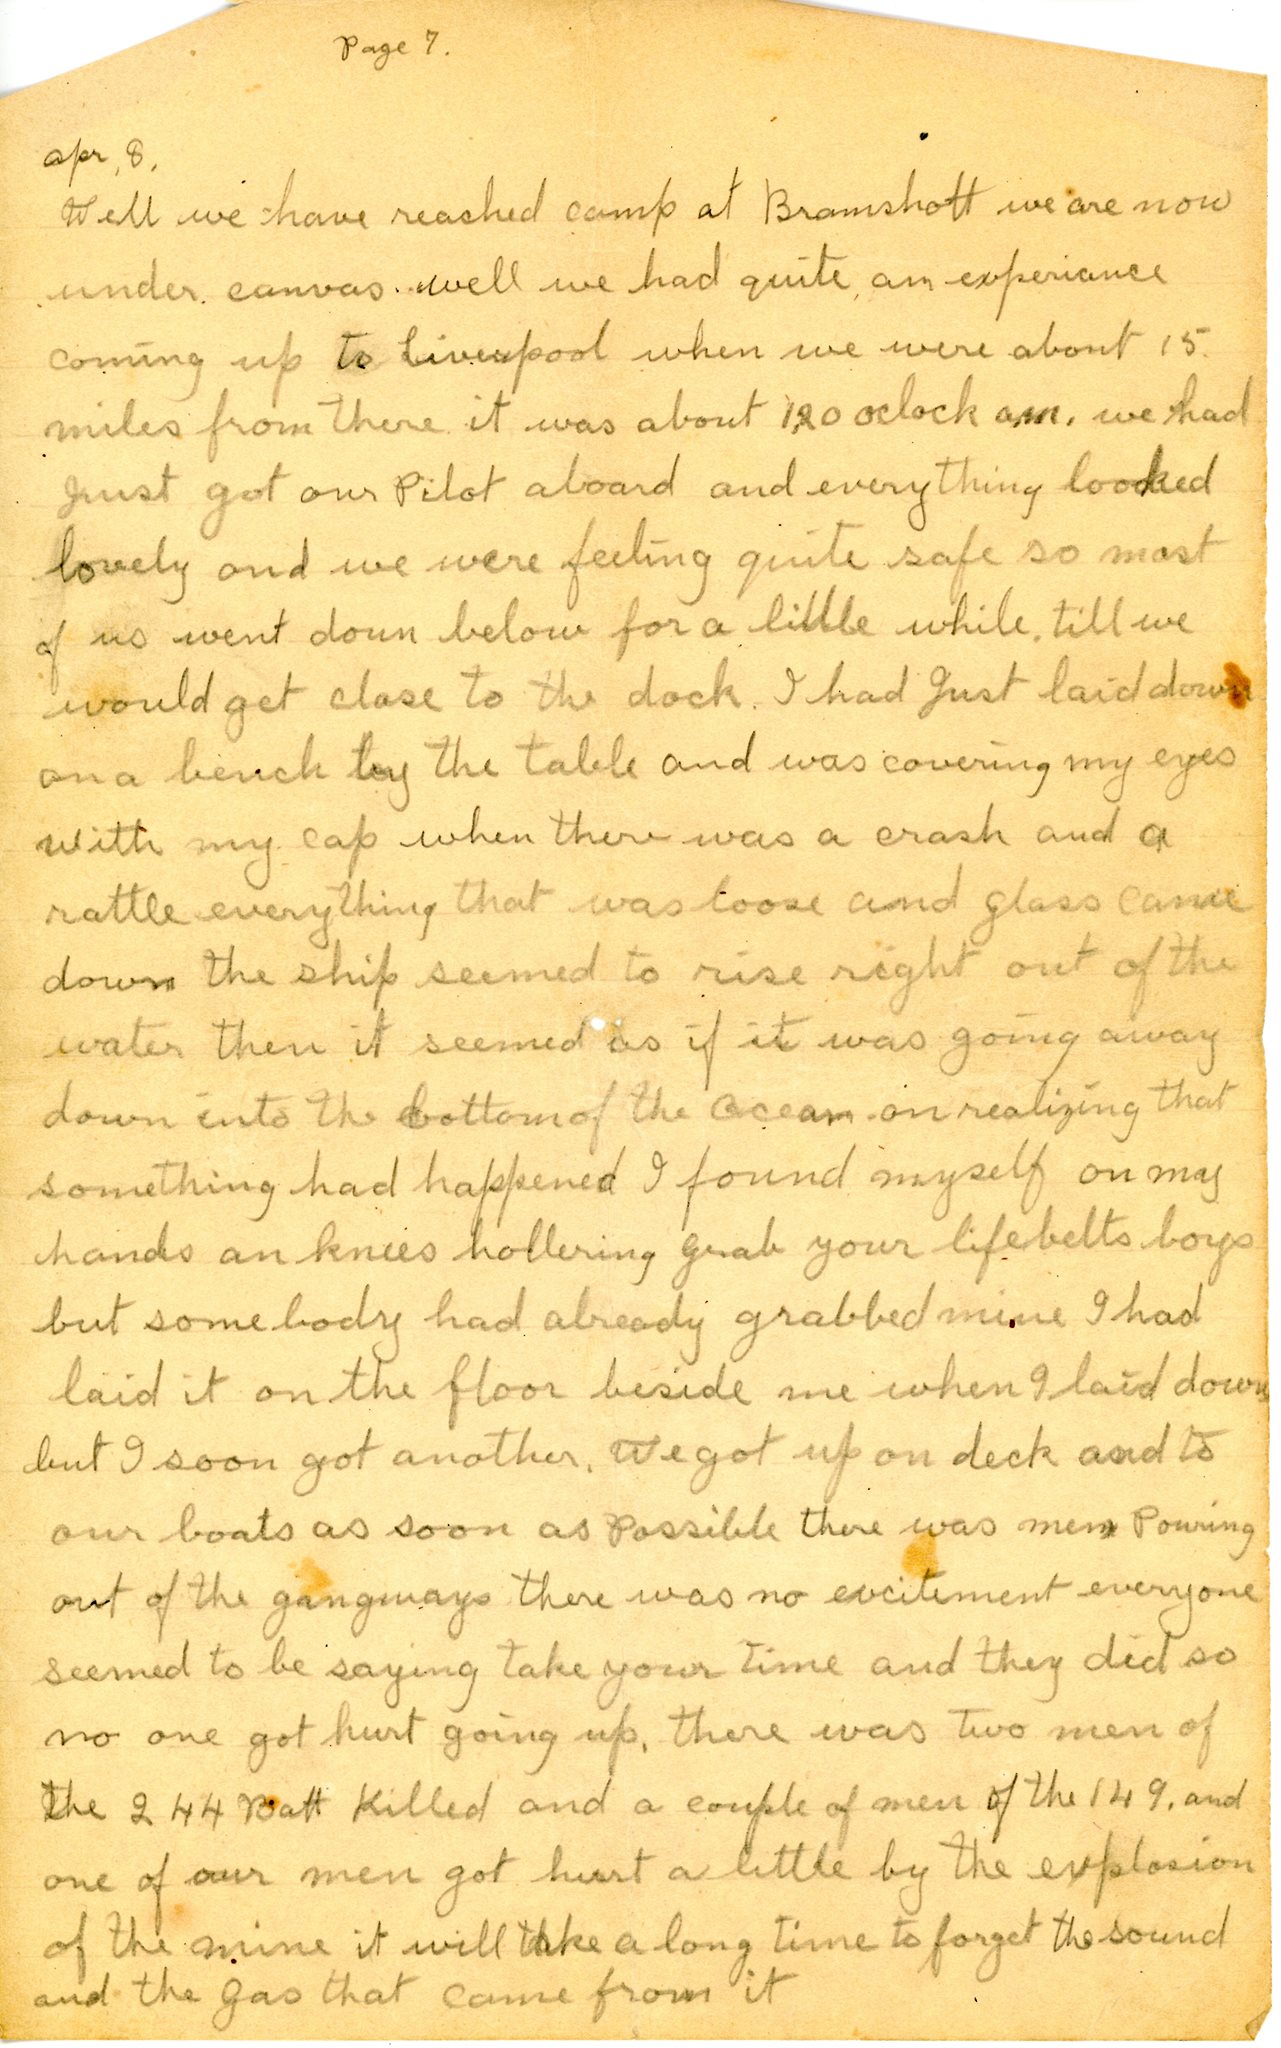 Page 7.
apr, 8.
Well we have reached camp at Bramshott we are now
under canvas. well we had quite an experiance
coming up to Liverpool when we were about 15
miles from there it was about 120 oclock a.m. we had
Just got our Pilot aboard and everything loooked
lovely and we were feeling quite safe so most
of us went down below for a little while. till we
would get close to the dock. I had Just laid down
on a bench by the table and was covering my eyes
with my cap when there was a crash and a
rattle everything that was loose and glass came
down the ship seemed to rise right out of the
water then it seemed as if it was going away
down into the bottom of the Ocean on realizing that
something had happened I found myself on my
hands an knees hollering grab your lifebelts boys
but somebody had already grabbed mine I had
laid it on the floor beside me when I laid down
but I soon got another. We got up on deck and to
our boats as soon as Possible there was men Pouring
out of the gangways there was no excitement everyone
seemed to be saying take your time and they did so
no one got hurt going up. there was two men of
the 244 Batt Killed and a couple of men of the 149. and
one of our men got hurt a little by the explosion
of the mine it will take a long time to forget the sound
and the gas that came from it